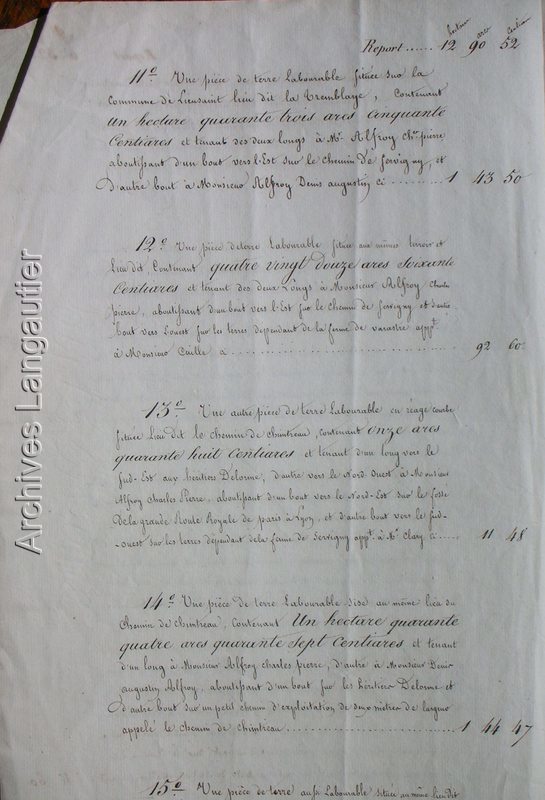 hectares ares Centiares
Report ...... 12 90 52
11º Une pièce de terre Labourable située sur la
Commune de Lieusaint lieu dit la Tremblaye, Contenant
Un hectare quarante trois ares Cinquante
Centiares et tenant des deux longs à Mr. Alfroy Chles pierre
aboutissant d'un bout vers l'Est sur le chemin de Servigny, et
D'autre bout à Monsieur Alfroy Denis augustin Ci .......... 1 43 50
12º Une pièce de terre Labourable située aux mêmes terroir et
Lieu dit, Contenant quatre vingt douze ares Soixante
Centiares et tenant des deux Longs à Monsieur Alfroy Charles
pierre, aboutissant d'un bout vers l'Est sur le Chemin de Servigny et d'autre
bout vers l'ouest sur les terres dépendant de la ferme de varastre appt
à Monsieur Caille à .......... 92 60
13º Une autre pièce de terre Labourable en réage courbe
située Lieu dit le chemin de Chintreau, contenant onze ares
quarante huit Centiares et tenant d'un long vers le
Sud-Est aux héritiers Delorme, d'autre vers le Nord Ouest à Monsieur
Alfroy Charles Pierre, aboutissant d'un bout vers le Nord-Est sur le fossé
De la grande Route Royale de paris à Lyon, et d'autre bout vers le Sud-
-ouest sur les terres dépendant de la ferme de Servigny appt à Mr Clary à .... 11 48
14º Une pièce de terre Labourable sise au même lieu du
Chemin de Chintreau, Contenant Un hectare quarante
quatre ares quarante Sept Centiares et tenant
d'un long à Monsieur Alfroy charles pierre, d'autre à Monsieur Denis
augustin Alfroy, aboutissant d'un bout sur les héritiers Delorme et
d'autre bout sur un petit chemin d'exploitation de deux mètres de largeur
appelé le chemin de Chintreau .......... 1 44 47
15º Une pièce de terre aussi Labourable située au même lieu dit
Archives Langautier